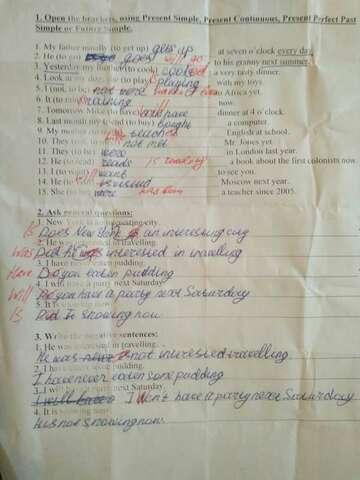 1. Open the brackets, using Present Simple, Present Continuous, Present Perfect Past
Simple or Future Simple.
1. My father usually (to get up) gets up at seven o'clock every day.
2. He (to go) goes will go to his granny next summer.
3. Yesterday my mother (to cook) cooked a very tasty dinner.
4. Look at my (to play) playing with my toys.
5. I (not, to be) not were to Africa yet.
6. It (to rain) raining now.
7. Tomorrow Mike (to have) have dinner at 4 o'clock.
8. Last month my (to buy) bought a computer.
9. My mother (to teach) teaches English at school.
10. They (not, to meet) not met Mr. Jones yet.
11. They (to be) were in London last year.
12. He (to read) reads is reading a book about the first colonists now.
13. I (to want) want to see you.
14. He (to visit) Moscow next year.
15. She (to be) were has been a teacher since 2005.
2. Ask general questions:
1. New York is an interesting city.
Is Does New York is an interesting city
2. He was interested in travelling.
Was Did he interested in travelling
3. I have eaten pudding.
Have Do you eaten pudding
4. I will have a party next Saturday
Will Do you have a party next Saturday
Is Did It snowing now
3. Write the negative sentences:
1. He was interested in travelling.
He was not interested travelling
2. I have eaten some pudding.
I have never eaten some pudding
3. I will have a party next Saturday.
I will have I won't have a party next Saturday
4. It is snowing now.
It is not snowing now